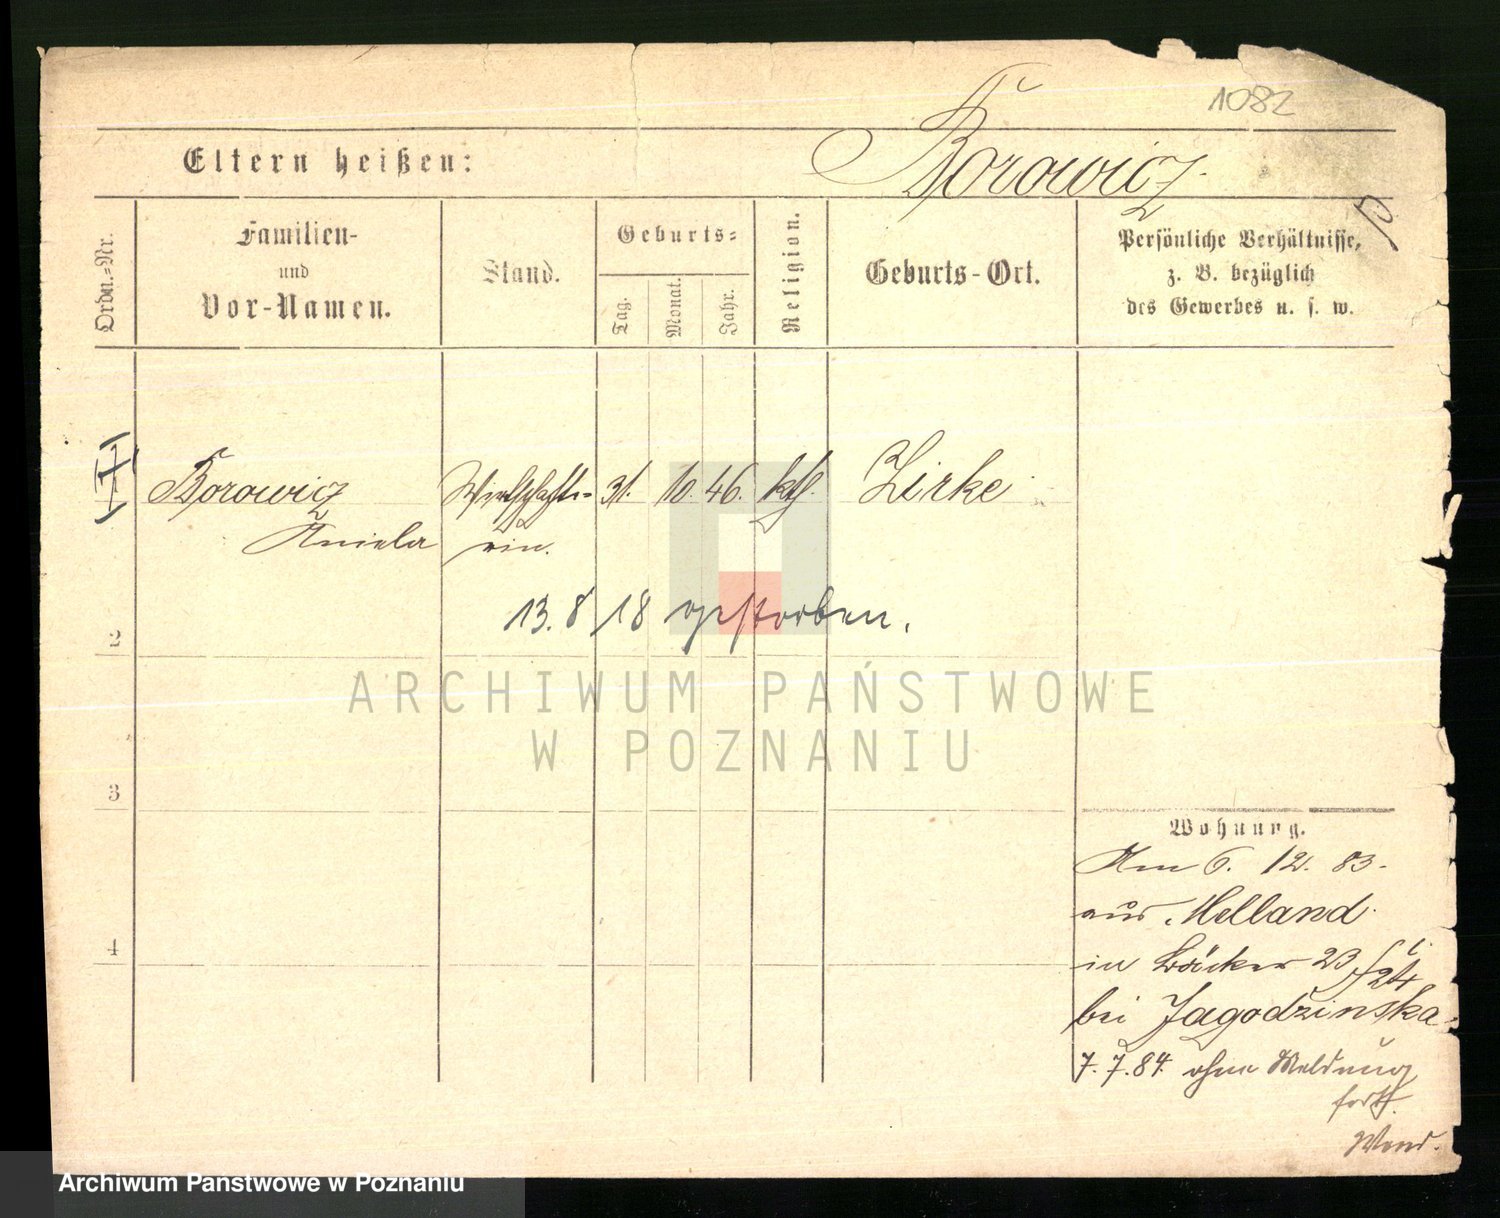 1082
Eltern heißen:
Borowicz
Ordn.=Nr.
Familien-
und
Vor-Namen.
Stand.
Geburts=
Tag.
Monat.
Jahr.
Religion.
Geburts-Ort.
Persönliche Verhältnisse,
z. B. bezüglich
des Gewerbes u. s. w.
Borowicz Wirthschafte= 31. 10. 46. kth. Zirke
Aniela rin.
13. 8 18 gestorben.
2
ARCHIWUM PAŃSTWOWE
W POZNANIU
3
Wohnung.
Am 6. 12. 83.
aus Melland
4
in Bäcker 23/24
bei Jagodzinska
7. 7. 84 ohne Meldung
forth.
Wend.
Archiwum Państwowe w Poznaniu